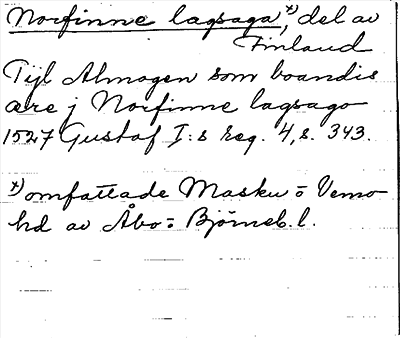 Norfinne lagsaga,*) del av
Finland
Tijl Almogen som boandis
ære j Norfinne lagsago
1527 Gustaf I:s reg. 4, s. 343.
*) omfattade Masku o Vemo
hd av Åbo o Björneb. l.